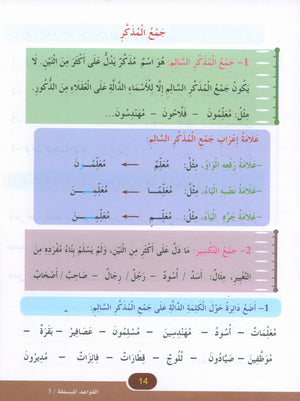 جَمْعُ الْمُذَكَّرِ
1- جَمْعُ الْمُذَكَّرِ السَّالِمِ: هُوَ اسْمٌ مُذَكَّرٌ يَدُلُّ عَلَى أَكْثَرَ مِنَ اثْنَيْنِ. لَا
يَكُونُ جَمْعُ الْمُذَكَّرِ السَّالِمِ إِلَّا لِلْأَسْمَاءِ الدَّالَّةِ عَلَى الْعُقَلَاءِ مِنَ الذُّكُورِ.
مِثْلُ: مُعَلِّمُونَ – فَلَّاحُونَ – مُهَنْدِسُونَ...
عَلَامَةُ إِعْرَابِ جَمْعِ الْمُذَكَّرِ السَّالِمِ:
-عَلَامَةُ رَفْعِهِ الْوَاوُ، مِثْلُ: مُعَلِّمٌ ← مُعَلِّمُونَ
-عَلَامَةُ نَصْبِهِ الْيَاءُ، مِثْلُ: مُعَلِّمًا ← مُعَلِّمِينَ
-عَلَامَةُ جَرِّهِ الْيَاءُ، مِثْلُ: مُعَلِّمٍ ← مُعَلِّمِينَ
2- جَمْعُ التَّكْسِيرِ: مَا دَلَّ عَلَى أَكْثَرَ مِنِ اثْنَيْنِ، وَلَمْ يَسْلَمْ بِنَاءُ مُفْرَدِهِ مِنَ
التَّغْيِيرِ، مِثَالُ: أَسَدٌ / أُسُودٌ – رَجُلٌ / رِجَالٌ – صَاحِبٌ / أَصْحَابٌ
1- أَضَعُ دَائِرَةً حَوْلَ الْكَلِمَةِ الدَّالَّةِ عَلَى جَمْعِ الْمُذَكَّرِ السَّالِمِ:
مُعَلِّمَاتٌ – أُسُودٌ – مُهَنْدِسِينَ – مُسْلِمُونَ – عَصَافِيرُ – بَقَرَةٌ –
مُوَظَّفِينَ – صَيَّادُونَ – ثُلُوجٌ – قِطَارَاتٌ – فَائِزَاتٌ – مُدِيرُونَ
14
القواعد المبسطة / 5